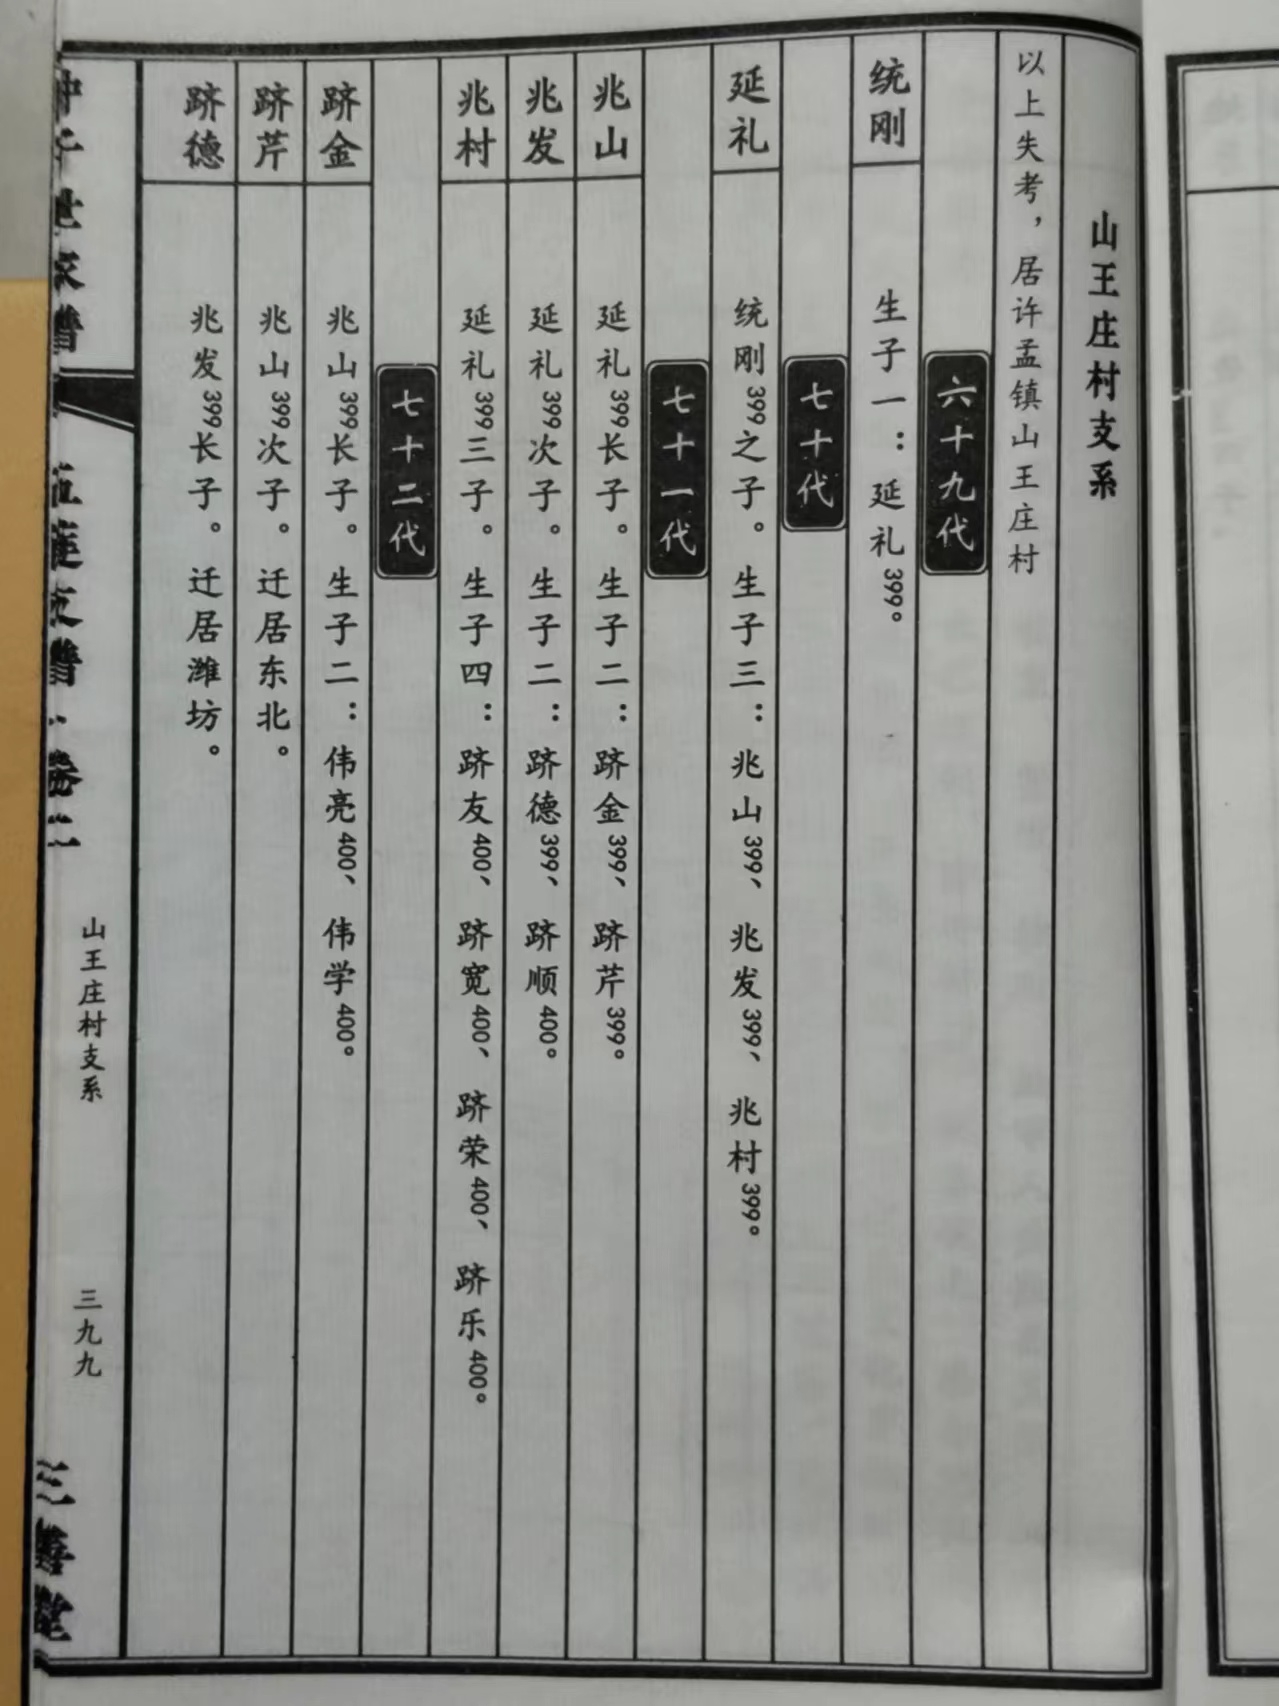 山王庄村支系
以上失考，居许孟镇山王庄村
六十九代
统刚 生子一：延礼399。
七十代
延礼 统刚399之子。生子三：兆山399、兆发399、兆村399。
七十一代
兆山 延礼399长子。生子二：跻金399、跻芹399。
兆发 延礼399次子。生子二：跻德399、跻顺400。
兆村 延礼399三子。生子四：跻友400、跻宽400、跻荣400、跻乐400。
七十二代
跻金 兆山399长子。生子二：伟亮400、伟学400。
跻芹 兆山399次子。迁居东北。
跻德 兆发399长子。迁居潍坊。
山王庄村支系
三九九
三善堂